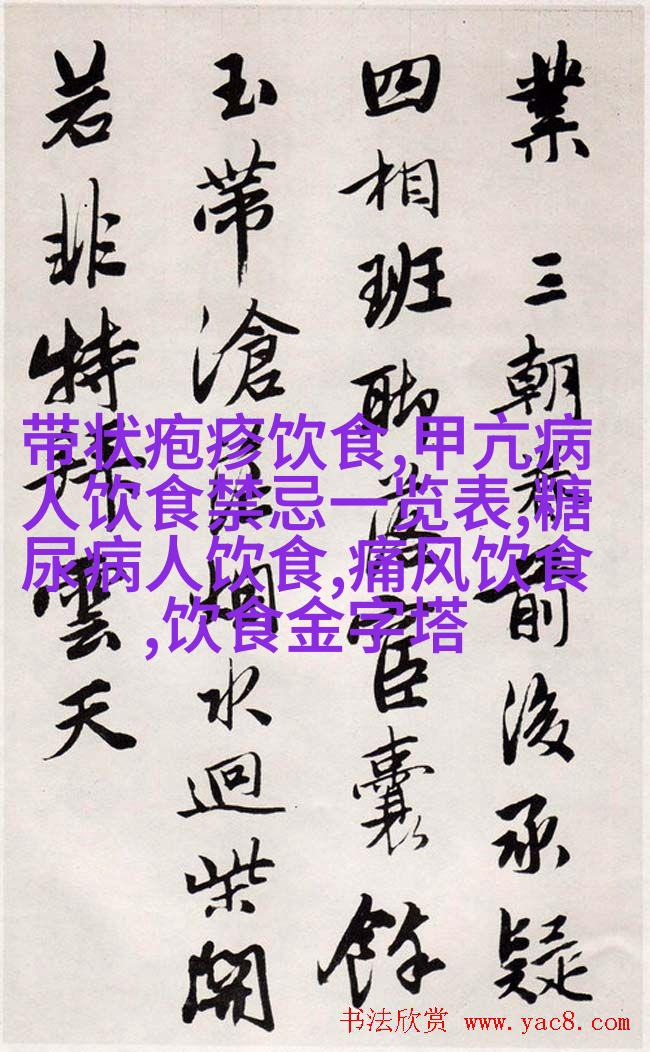 業 三朝前後承疑
四相班聯宦囊餘
玉帶滄烟水迥柴開
若非特拜雲天
带状疱疹饮食,甲亢病
人饮食禁忌一览表,糖
尿病人饮食,痛风饮食
,饮食金字塔
书法欣赏 www.yac8.com